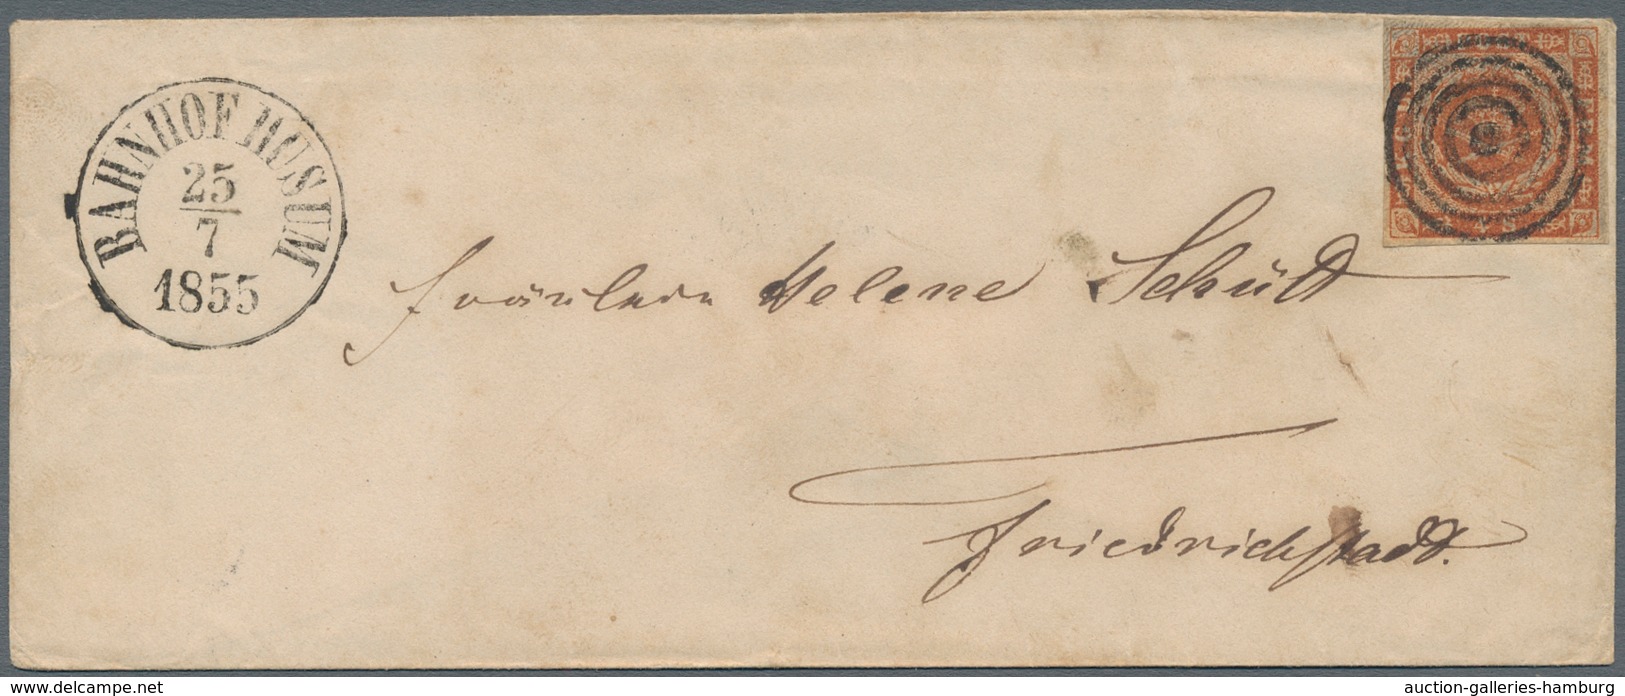 BAHNHOF HUSUM
25
7
1855
Fräulein Helene Schütt
Friedrichstadt.
auction-galleries-hamburg